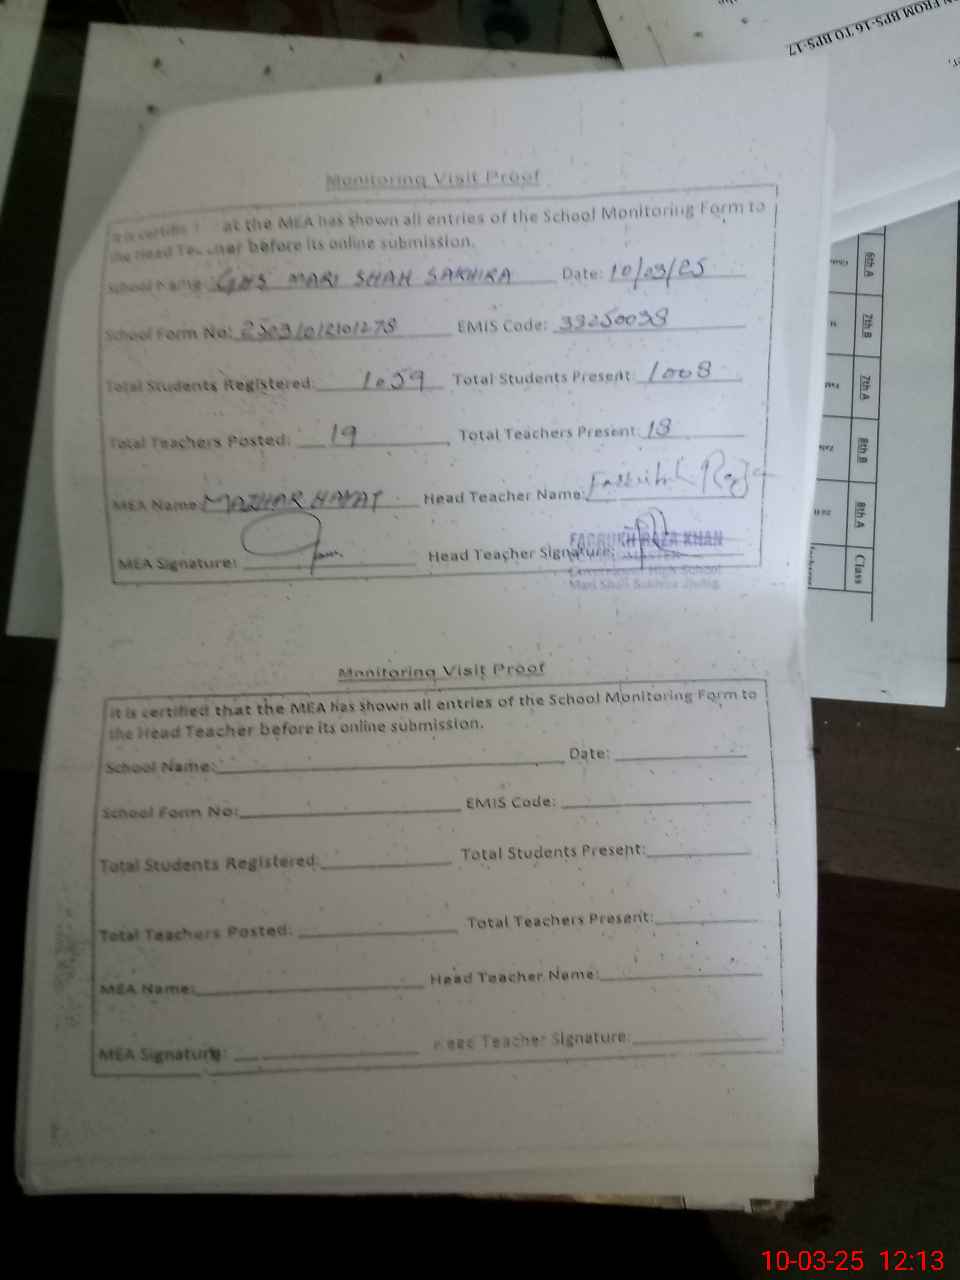 FROM BPS-16 TO BPS-17
Monitoring Visit Proof
at the MEA has shown all entries of the School Monitoring Form to
the Head Teacher before its online submission.
School Name: GHS MARI SHAH SAKHIRA Date: 10/03/25
School Form No: EMIS Code: 33250038
Total Students Registered: 1059 Total Students Present: 1008
Total Teachers Posted: 19 Total Teachers Present: 18
MEA Name: MAZHAR HAYAT Head Teacher Name: Farrukh Raza
MEA Signature: Head Teacher Signature:
FARRUKH RAZA KHAN
Government High School
Mari Shah Sakhira Jhang
Monitoring Visit Proof
It is certified that the MEA has shown all entries of the School Monitoring Form to
the Head Teacher before its online submission.
School Name: Date:
School Form No: EMIS Code:
Total Students Registered: Total Students Present:
Total Teachers Posted: Total Teachers Present:
MEA Name: Head Teacher Name:
MEA Signature: Head Teacher Signature:
6th A
7th B
7th A
8th B
8th A
Class
10-03-25 12:13